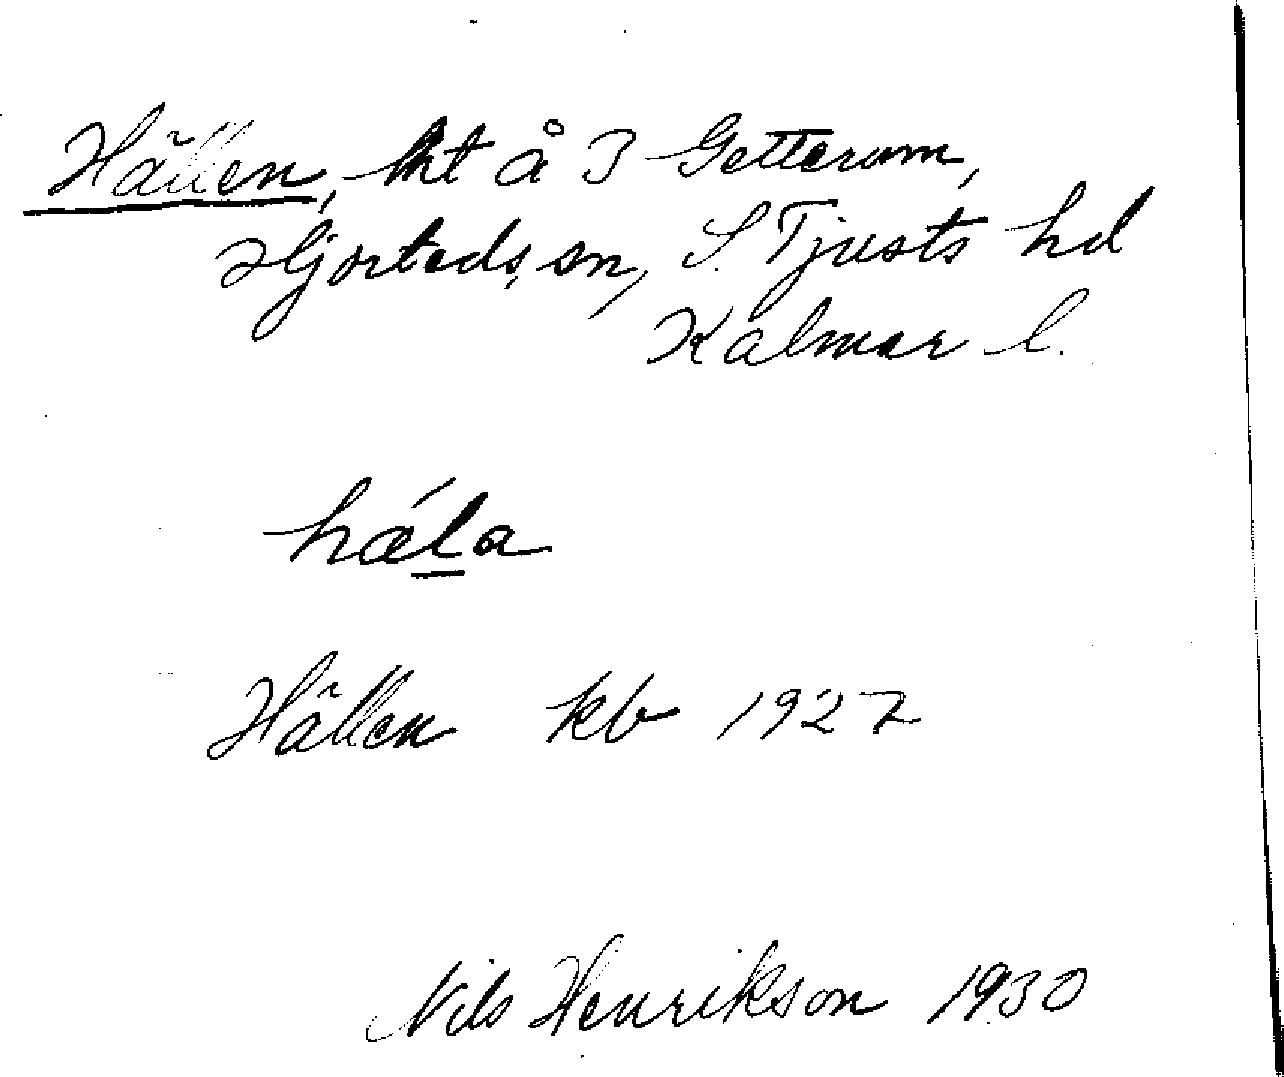 Hällen, lht å 3 Getterum,
Hjorteds sn, S. Tjusts hd
Kalmar l.
hǽla
Hällen kb 1927
Nils Henrikson 1930